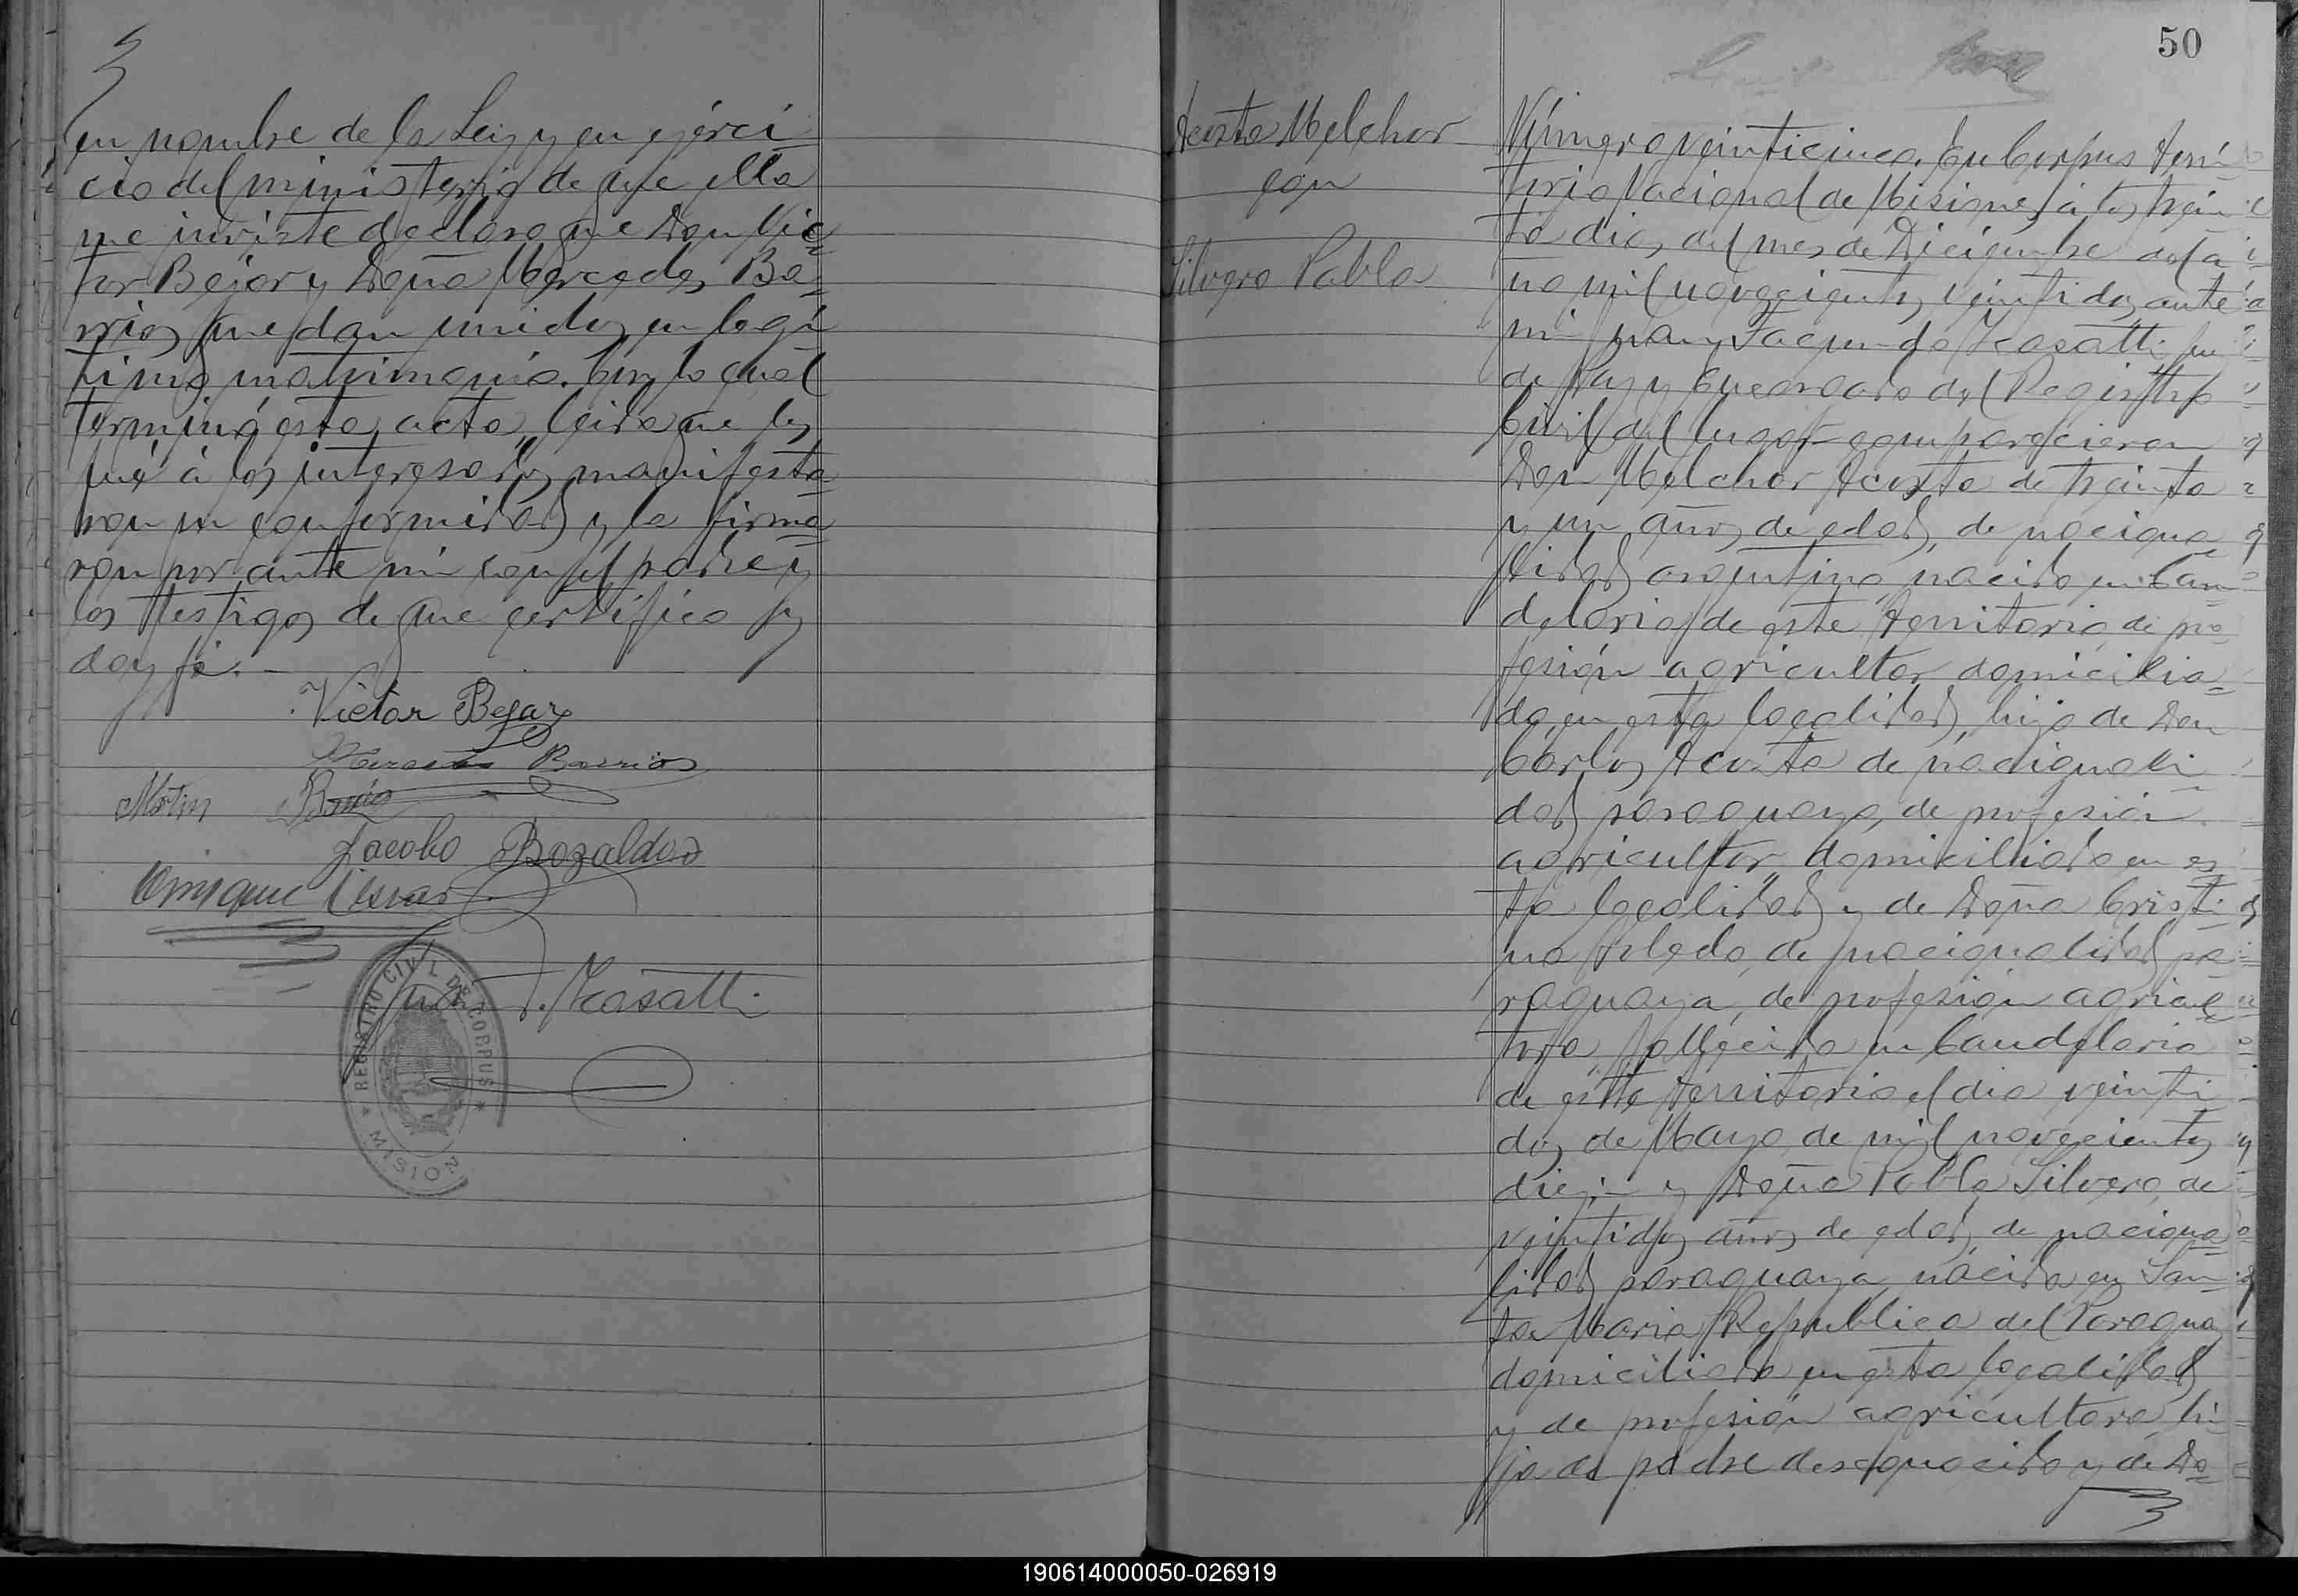 en nombre de la Ley y en ejerci
cio del ministerio de que ella
me inviste declaro que Don Vic=
tor Bejar y Doña Mercedes Ba=
rrios quedan unidos en legi
timo matrimonio. Con lo cual
terminó esta acta, leida que les
fué á los interesados, manifesta=
ron su conformidad y la firma=
ron por ante mi con el padre y
los testigos de que certifico y
doy fé.-
Victor Bejar
Mercedes Barrios
Jacobo Bogaldo
Enrique
J. F. Casatti
REGISTRO CIVIL DE CORPUS
MISION
50
Acosta Melchor
con
Silvero Pabla
Número veinticinco. En Corpus Terri=
torio Nacional de Misiones, á los trein
ta dias del mes de Diciembre del a
ño mil novecientos veintidos, ante
mi Juan Facundo Casatti Juez
de Paz y Encargado del Registro
Civil del lugar comparecieron
Don Melchor Acosta de treinta
y un años de edad, de naciona
lidad argentino, nacido en Can=
delaria de este Territorio, de pro
fesión agricultor domicilia=
do en esta localidad, hijo de Don
Carlos Acosta de nacionali
dad paraguaya, de profesión
agricultor, domiciliado en es
ta localidad y de Doña Cristi
na Toledo, de nacionalidad pa=
raguaya, de profesión agricul
tora, fallecida en Candelaria
de este territorio el dia veinti
dos de Mayo de mil novecientos
diez;- y Doña Pabla Silvero, de
veintidos años de edad, de naciona=
lidad paraguaya, nacida en San
ta Maria, Republica del Paraguay
domiciliada en esta localidad
y de profesión agricultora, hi=
ja de padre desconocido y de Do=
190614000050-026919